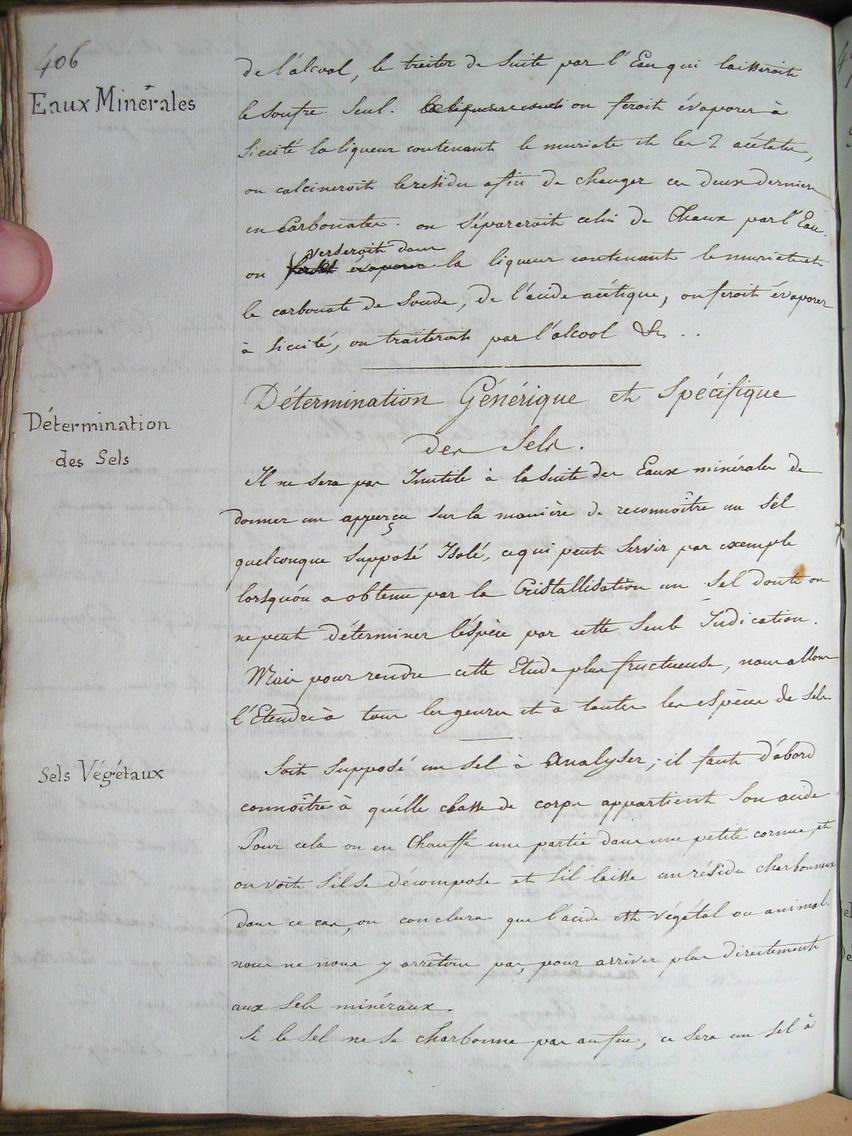 406
Eaux Minérales
de l'alcool, le traiter de Suite par l'Eau qui laisseroit
le Soufre Seul. on feroit évaporer à
Siccité la liqueur contenant le muriate et les 2 acétates,
on calcineroit le résidu afin de changer ces deux derniers
en Carbonates. on Séparerait celui de Chaux par l'Eau.
verseroit dans
on évaporer la liqueur contenant le muriate et
le carbonate de Soude, de l'acide acétique, on feroit évaporer
à Siccité, on traiteroit par l'alcool &c ..
Détermination Générique et Spécifique
des Sels.
Détermination
des Sels
Il ne Sera pas Inutile à la Suite des Eaux minérales de
donner un apperçu Sur la manière de reconnoître un Sel
quelconque Supposé Isolé, ce qui peut Servir par exemple
lorsqu'on a obtenu par la Cristallisation un Sel dont on
ne peut déterminer l'éspèce par cette Seule Indication.
Mais pour rendre cette Etude plus fructueuse, nous allons
l'Etendre à tous les genres et à toutes les espèces de Sels.
Sels Végétaux
Soit Supposé un Sel à Analyser; il faut d'abord
connoître à quélle classe de corps appartient Son acide
Pour cela on en Chauffe une partie dans une petite cornue, et
on voit S'il Se décompose et S'il laisse un résidu charbonneux
dans ce cas, on conclura que l'acide est végétal ou animal.
nous ne nous y arrêtons pas, pour arriver plus directement
aux Sels minéraux.
Si le Sel ne Se charbonne pas au feu, ce Sera un Sel à